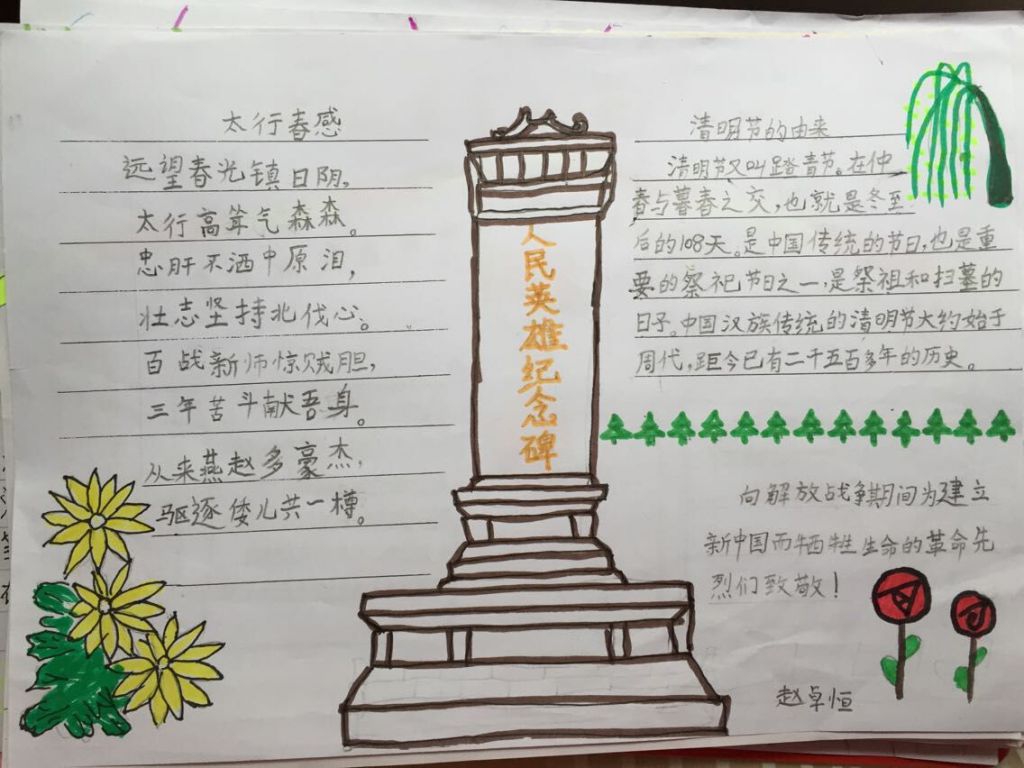 太行春感
远望春光镇日阴，
太行高耸气森森。
忠肝不洒中原泪，
壮志坚持北伐心。
百战新师惊贼胆，
三年苦斗献吾身。
从来燕赵多豪杰，
驱逐倭儿共一樽。
人民英雄纪念碑
清明节的由来
清明节又叫踏青节。在仲
春与暮春之交，也就是冬至
后的108天。是中国传统的节日，也是重
要的祭祀节日之一，是祭祖和扫墓的
日子。中国汉族传统的清明节大约始于
周代，距今已有二千五百多年的历史。
向解放战争期间为建立
新中国而牺牲生命的革命先
烈们致敬！
赵卓恒